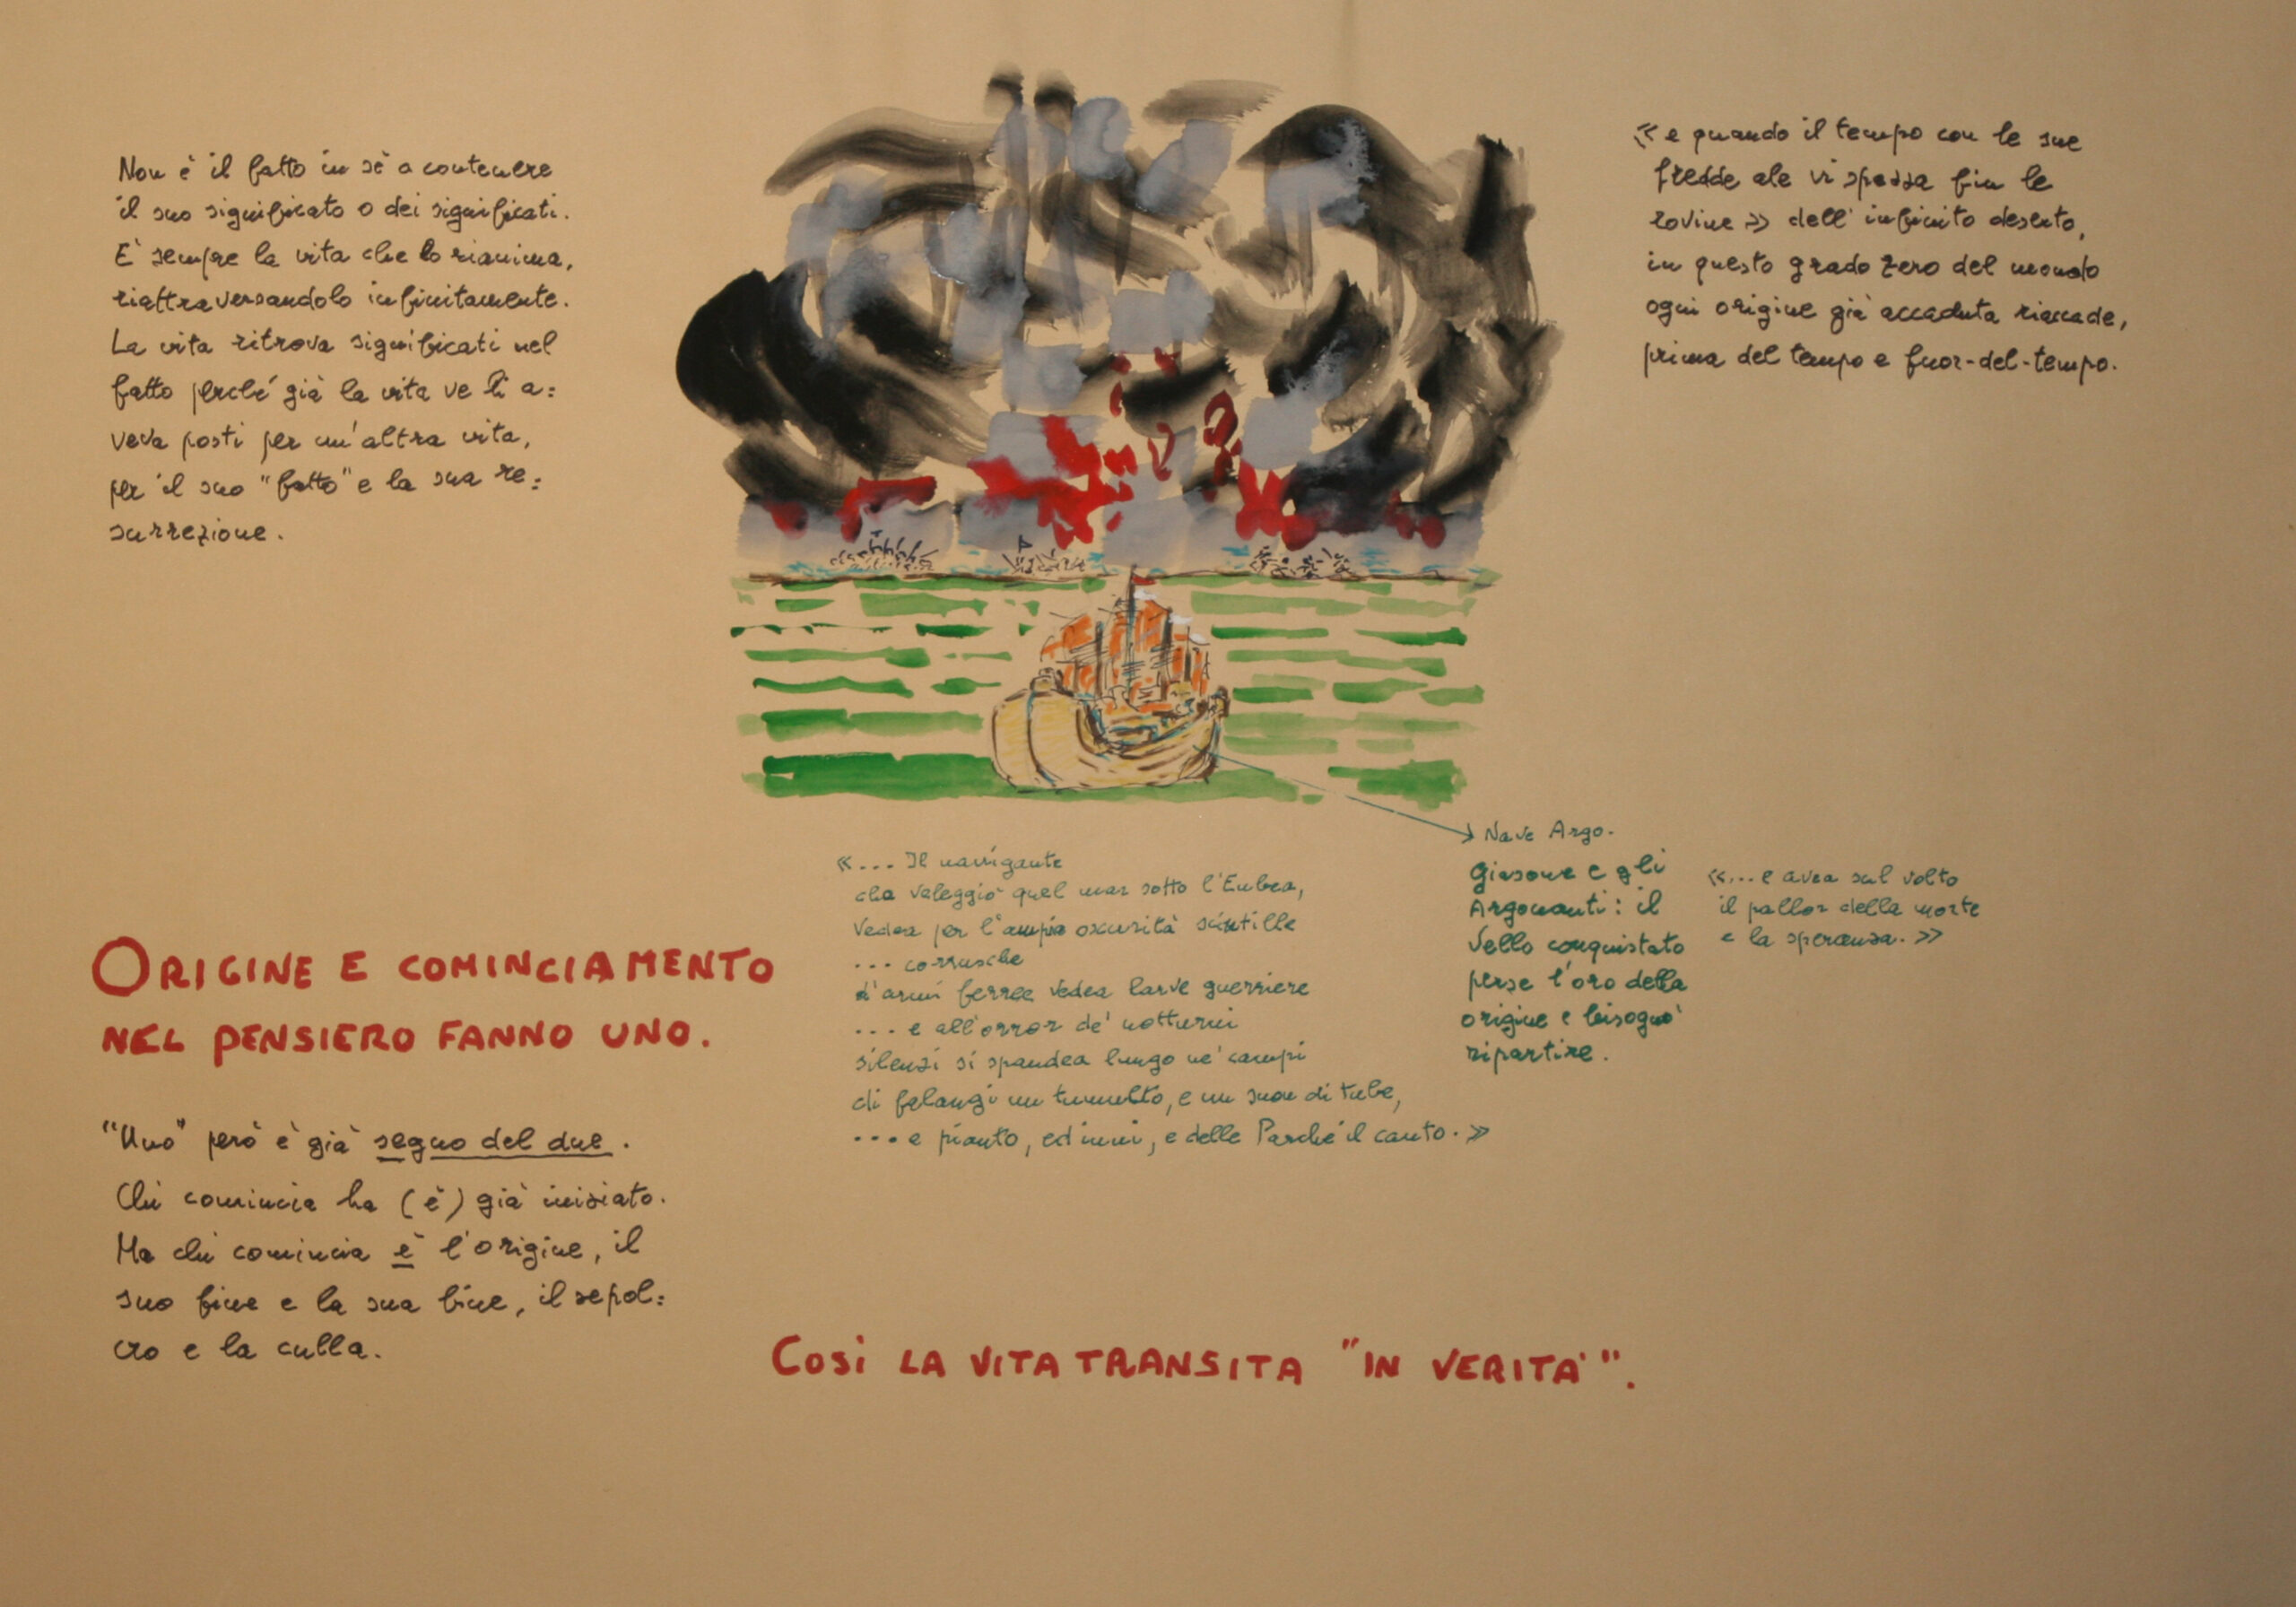 Non è il fatto in sè a contenere
il suo significato o dei significati.
E' sempre la vita che lo rianima,
riattraversandolo infinitamente.
La vita ritrova significati nel
fatto perché già la vita ve li a=
veva posti per un'altra vita,
per il suo "fatto" e la sua re=
surrezione.
« e quando il tempo con le sue
fredde ale vi spazza fin le
rovine » dell'infinito deserto,
in questo grado zero del mondo
ogni origine già accaduta riaccade,
prima del tempo e fuor-del-tempo.
ORIGINE E COMINCIAMENTO
NEL PENSIERO FANNO UNO.
"Uno" però è già segno del due.
Chi comincia ha (è) già iniziato.
Ma chi comincia è l'origine, il
suo fine e la sua fine, il sepol=
cro e la culla.
«... Il navigante
che veleggiò quel mar sotto l'Eubea,
vedea per l'ampia oscurità scintille
... corrusche
d'armi ferree vedea larve guerriere
... e all'orror de' notturni
silenzi si spandea lungo ne' campi
di falangi un tumulto, e un suon di tube,
.... e pianto, ed inni, e delle Parche il canto. »
Nave Argo.
Giasone e gli
Argonauti: il
Vello conquistato
perse l'oro della
origine e bisognò
ripartire.
«... e avea sul volto
il pallor della morte
e la speranza. »
COSì LA VITA TRANSITA "IN VERITA'".